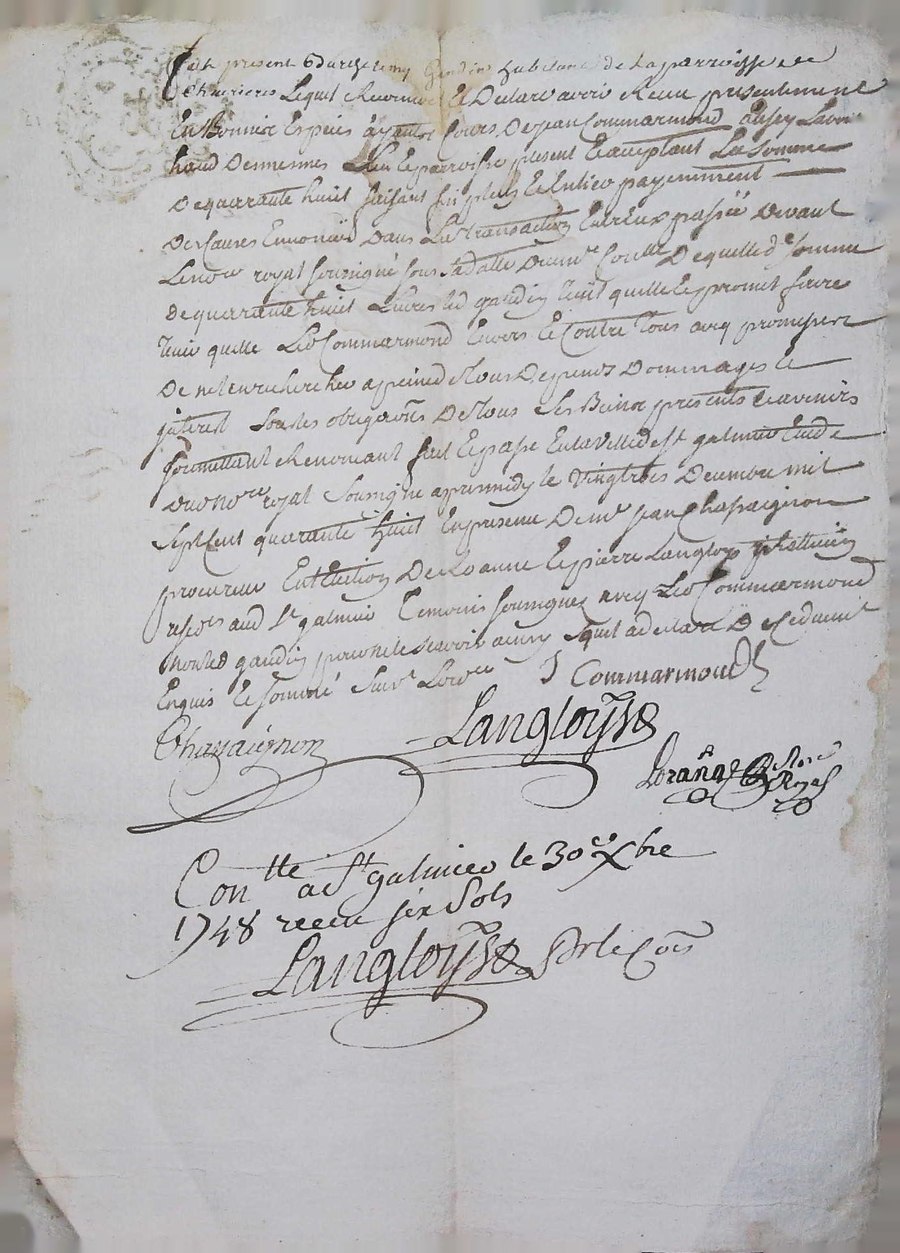 fut present Barthelemy Gaudin habitant de la parroisse de
Chevrieres Lequel Reconnoit Et Declare avoir Receu presentement
En Bonnes Espeies ayantes Cours De jean Commarmond aussy Labou
haud De mesmes Lieu Et parroisse present Et acceptant La Somme
De quarante huit faisant fin plein Et Entier payemment
Des Causes Ennonées Dans La transaction Entreux passée Devant
Le nore royal soussigné sous sa datte De quelle de somme
De quarante huit Livres led gaudin Tient quitte Et promet faire
Tenir quitte Led Commarmond Envers Et Contre Tous avq promesse
De ne Len rechercher a peine De tous Depens Dommages Et
jnterest Sous les obligaons De tous Ses Biens presents Et avenirs
soumettant Renoncant fait Et passé En la ville de st galmier Etude
Du nore royal Soussigné apres midy le Vingtrois Decembre mil
Sept Cent quarante huit En presence De mr jean Chassaignon
procureur En Lelection De Roanne Et pierre Langlois praticien
resids aud St galmier Temoins soussignez avec Led Commarmond
non led gaudin pour ne le scavoir ainsy quil a declaré De ce duement
Enquis Et sommé Suivt Lorce J Commarmond
Chassaignon Langloys
Lorange Nore Royal
Conlle a St galmier le 30e Xbre
1748 receu six Sols
Langloys Pr le Cois